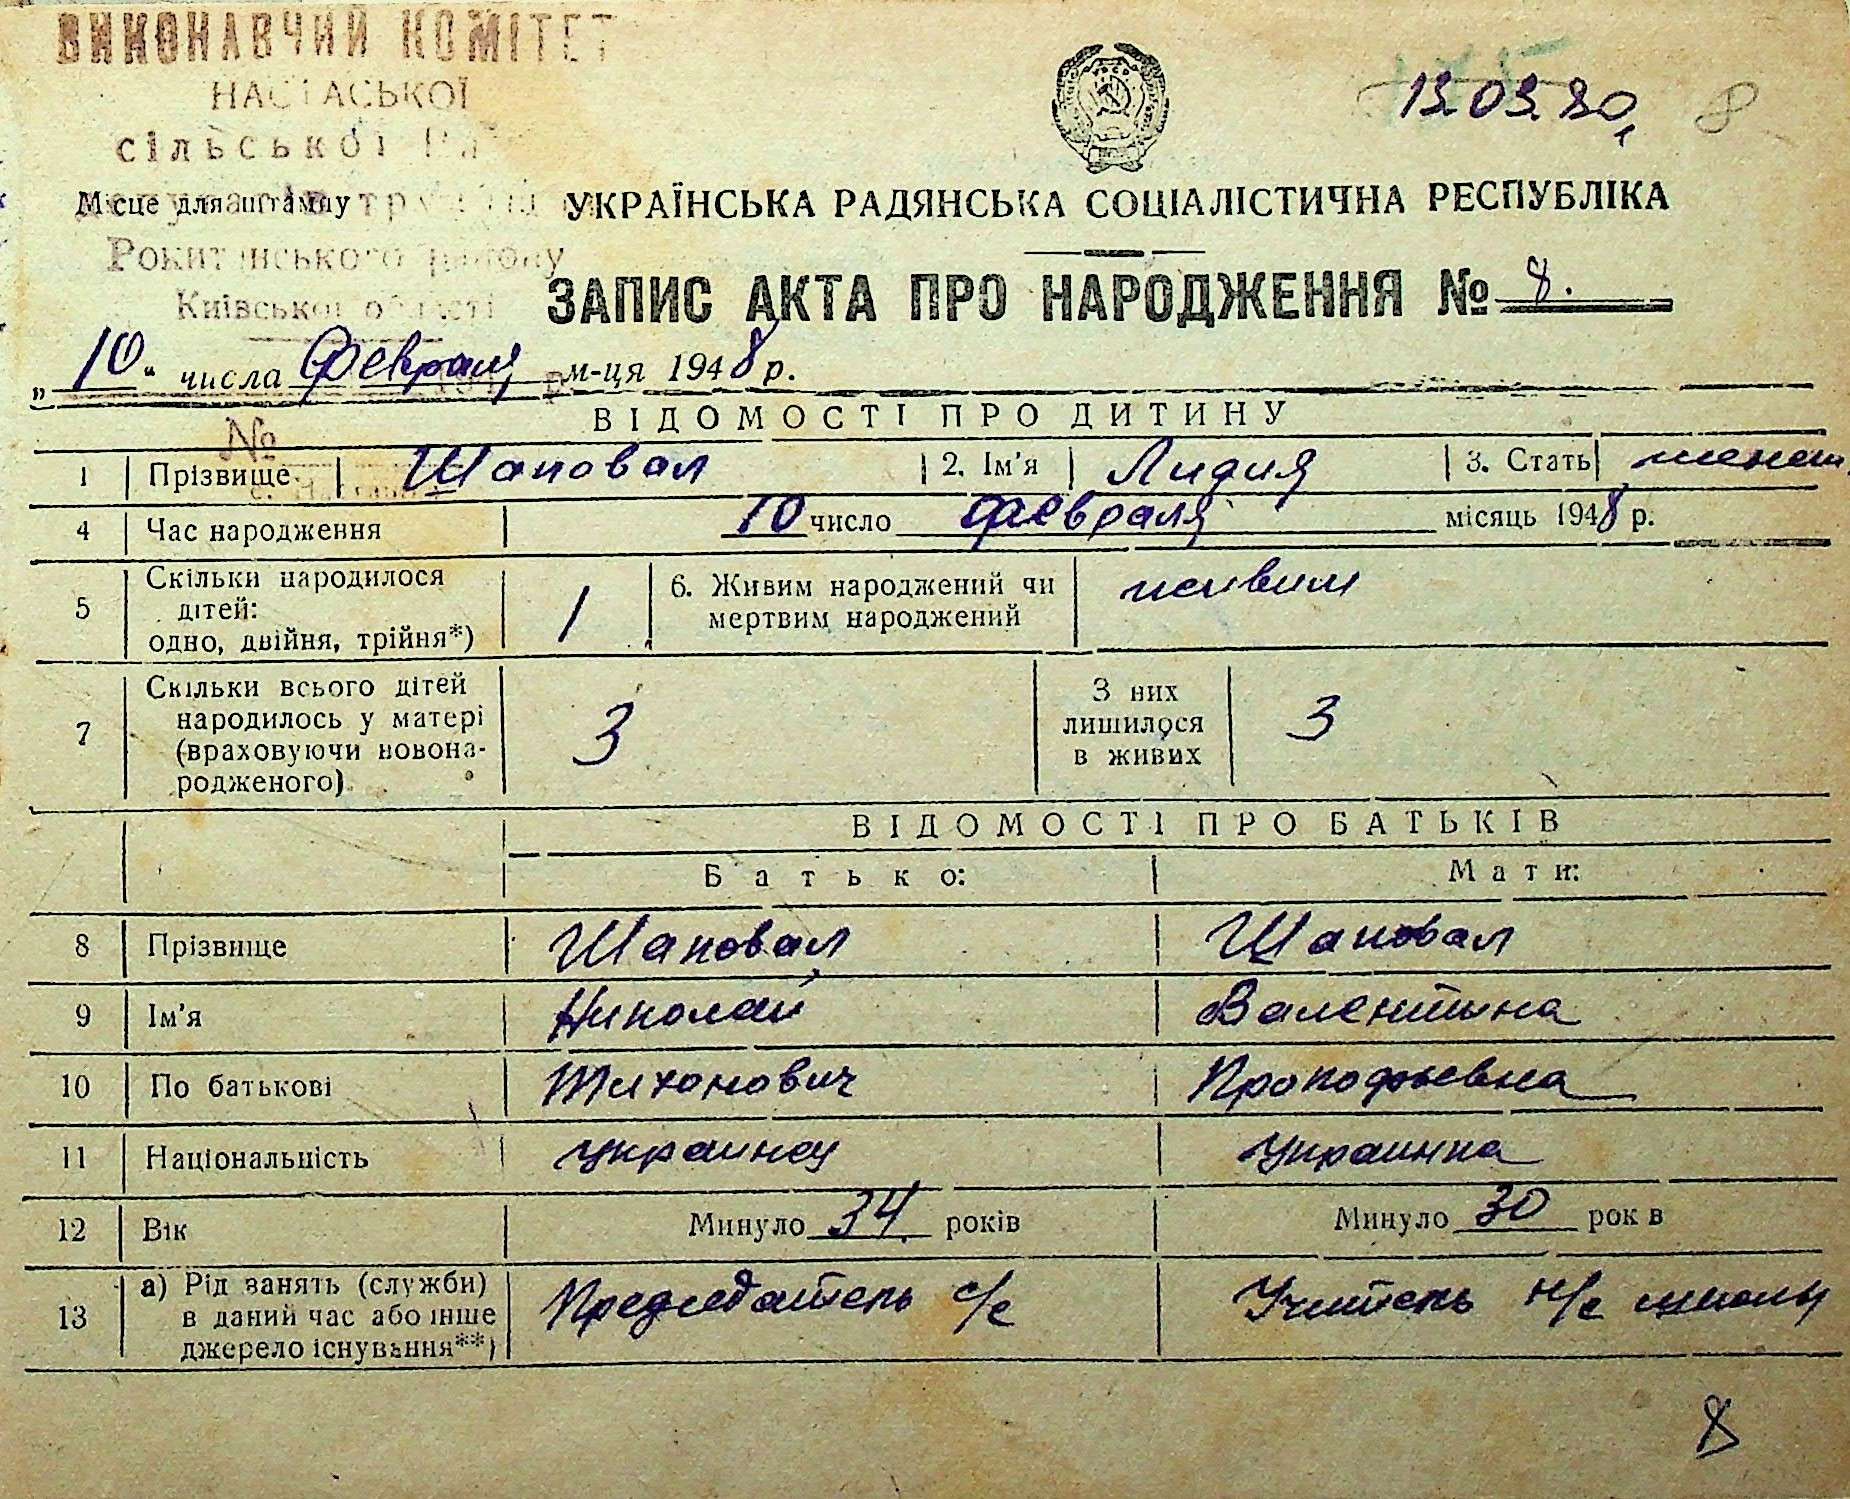 ВИКОНАВЧИЙ КОМІТЕТ
НАСТАСЬКОЇ
сільської
Місце для штампу
Рокитнянського району
Київської області
13.03.80, 8
УКРАЇНСЬКА РАДЯНСЬКА СОЦІАЛІСТИЧНА РЕСПУБЛІКА
ЗАПИС АКТА ПРО НАРОДЖЕННЯ № 8.
„10“ числа Февраля м-ця 1948 р.
№
ВІДОМОСТІ ПРО ДИТИНУ
1 Прізвище Шаповал 2. Ім'я Лидия 3. Стать женск.
4 Час народження 10 число февраля місяць 1948 р.
5 Скільки народилося дітей: одно, двійня, трійня*) 1 6. Живим народжений чи мертвим народжений живим
7 Скільки всього дітей народилось у матері (враховуючи новонародженого). 3 З них лишилося в живих 3
ВІДОМОСТІ ПРО БАТЬКІВ
Батько: Мати:
8 Прізвище Шаповал Шаповал
9 Ім'я Николай Валентина
10 По батькові Тихонович Прокофьевна
11 Національність украинец Украинка
12 Вік Минуло 34 років Минуло 30 рок в
13 а) Рід занять (служби) в даний час або інше джерело існування**) Председатель с/с Учитель н/с школы
8